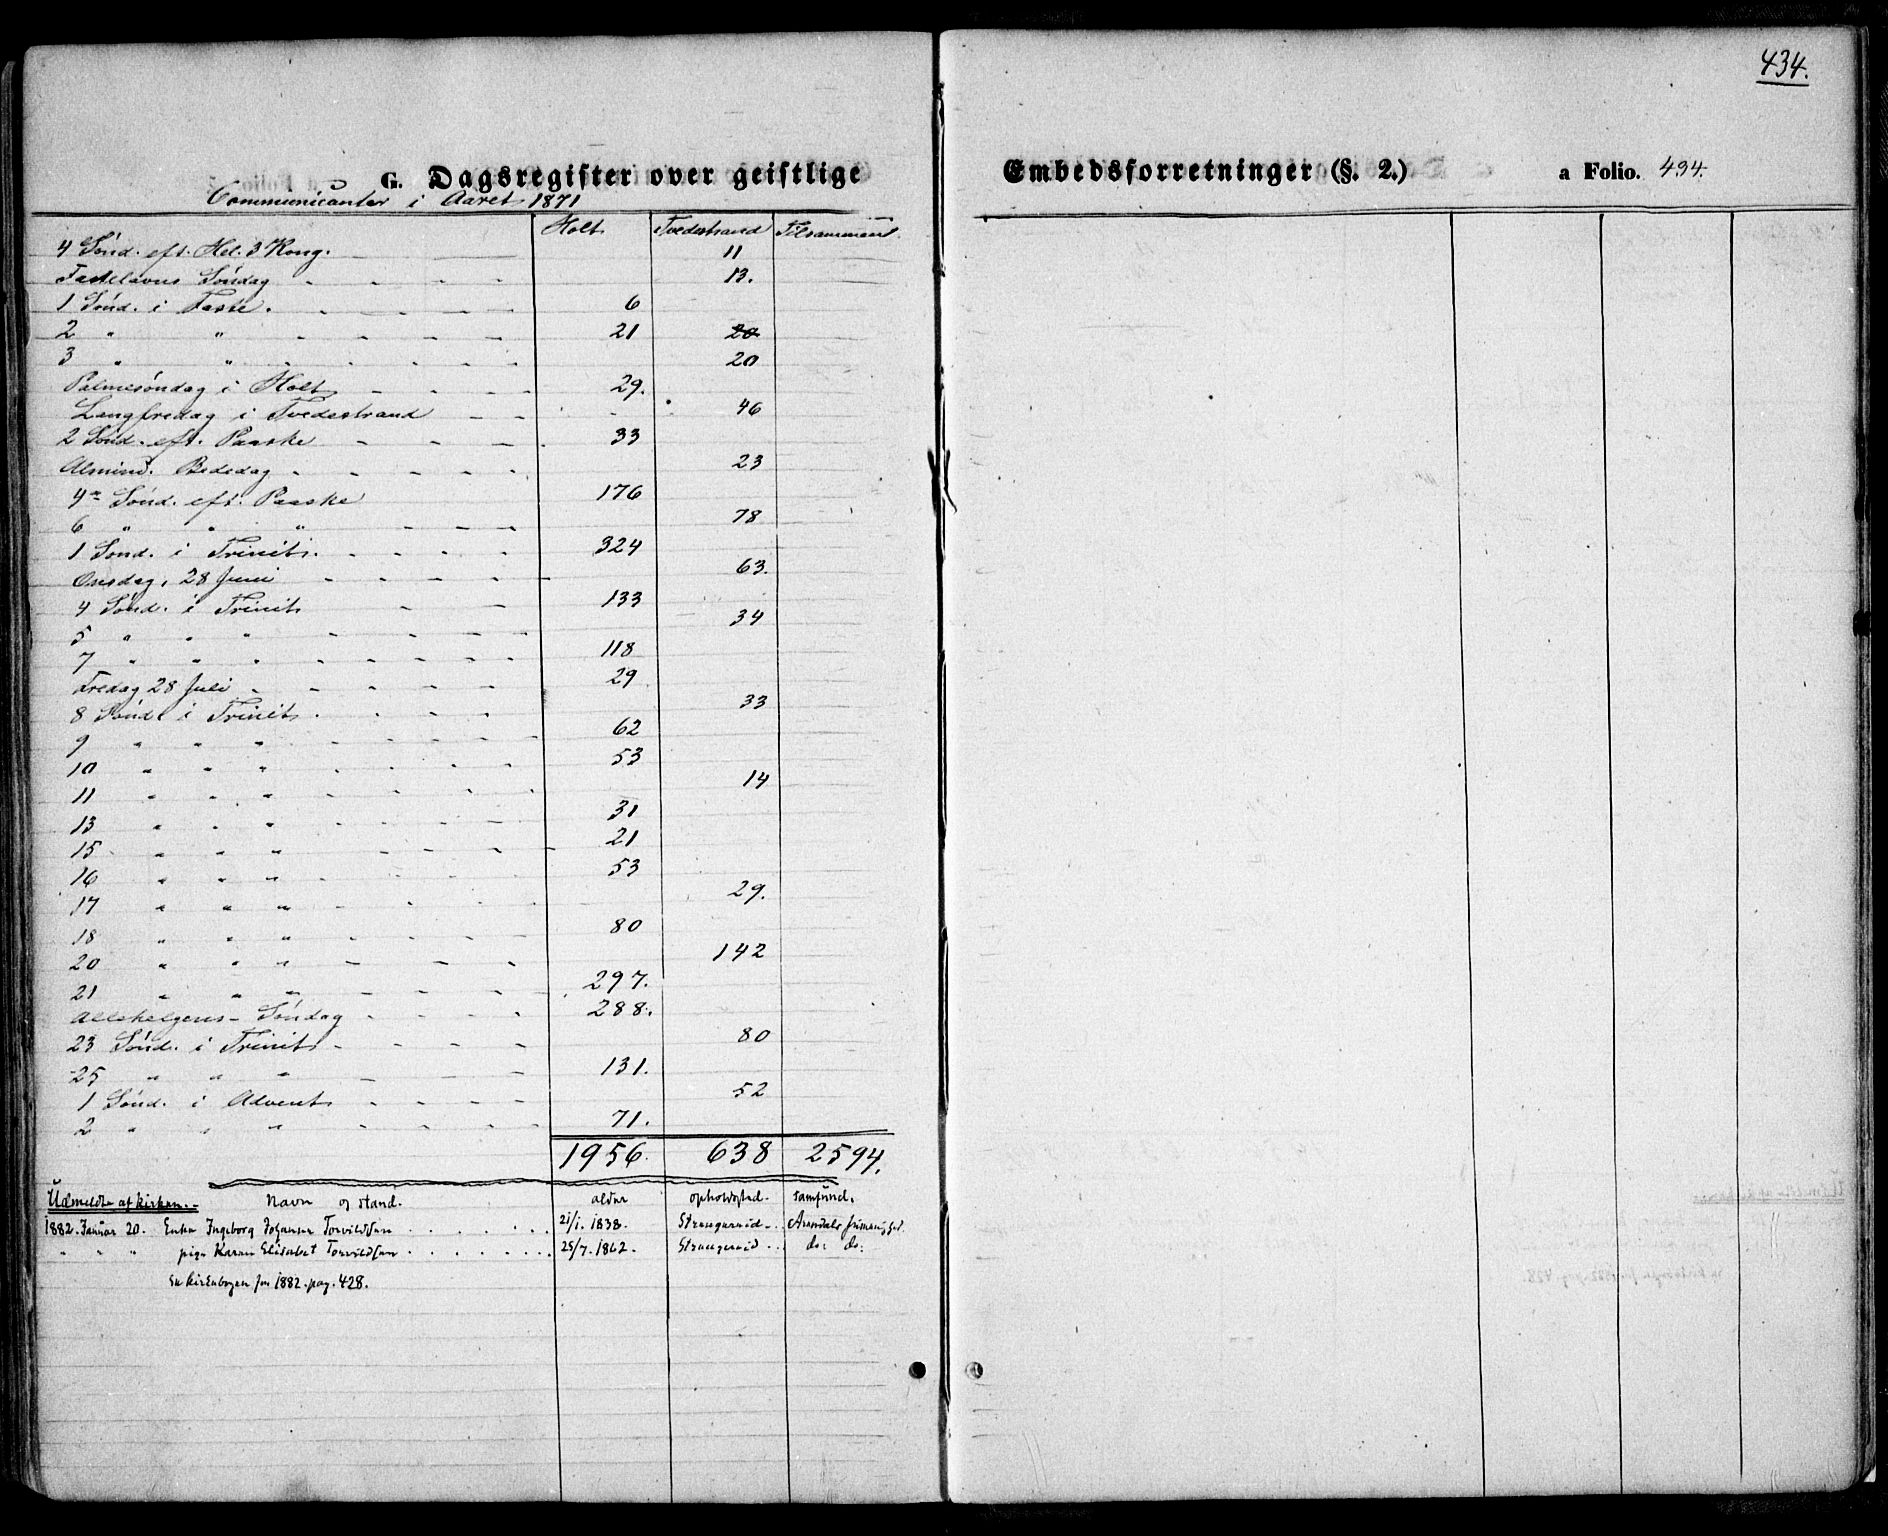 434.
G. Dagsregister over geistlige
Embedsforretninger (§. 2.)
a Folio. 434.
Communicanter i Aaret 1871
Holt Tvedestrand Tilsammen
4 Sönd. eft. Hel. 3 Kong. 11
Fastelavns Söndag 13.
1 Sönd. i Faste. 6
2 " " 21 20
3 " " 20
Palmesöndag i Holt 29.
Langfredag i Tvedestrand 46
2 Sönd. eft. Paaske 33
Almind. Bededag 23
4de Sönd. eft. Paaske 176
6 " " " 78
1 Sönd. i Trinits. 324
Onsdag, 28 Juni 63.
4 Sönd. i Trinits 133
5 " " " 34
7 " " " 118
Fredag 28 Juli 29
8 Sönd. i Trinits. 33
9 " " " 62
10 " " " 53
11 " " " 14
13 " " " 31
15 " " " 21
16 " " " 53
17 " " " 29.
18 " " " 80
20 " " " 142
21 " " " 297.
Allehelgens-Söndag 288.
23 Sönd. i Trinits 80
25 " " " 131.
1 Sönd. i Advent 52
2 " " " 71.
1956. 638 2594.
Udmeldte af kirken. Navn og stand. alder opholdssted. samfund.
1882. Januar 20. Enke Ingeborg Johanne Torvildsen 21/1. 1838. Strengereid Arendals
" " " pige Karen Elisabet Torvildsen 25/7. 1862. Strengereid do: do:
kirkenbogen for 1882. pag. 428.